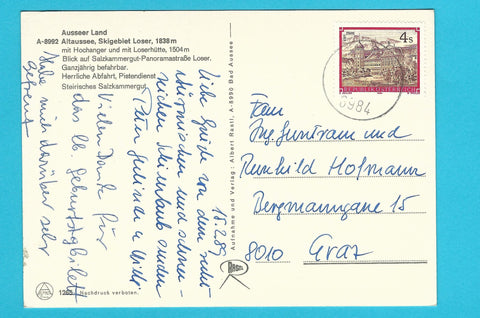 Ausseer Land
A-8992 Altaussee, Skigebiet Loser, 1838 m
mit Hochanger und mit Loserhütte, 1504 m
Blick auf Salzkammergut-Panoramastraße Loser.
Ganzjährig befahrbar.
Herrliche Abfahrt, Pistendienst
Steirisches Salzkammergut
18.2.89
Liebe Grüße von dem recht
stürmischen und schnee-
reichen Skiurlaub senden
Peter
Vielen Dank für
das lb. Geburtstagsbillett
Habe mich darüber sehr
gefreut
1265 Nachdruck verboten.
Aufnahme und Verlag: Albert Rastl, A-8990 Bad Aussee
4 S
REPUBLIK ÖSTERREICH
8984
Ing. Guntram und
Reinhild Hofmann
Bergmanngasse 15
8010 Graz